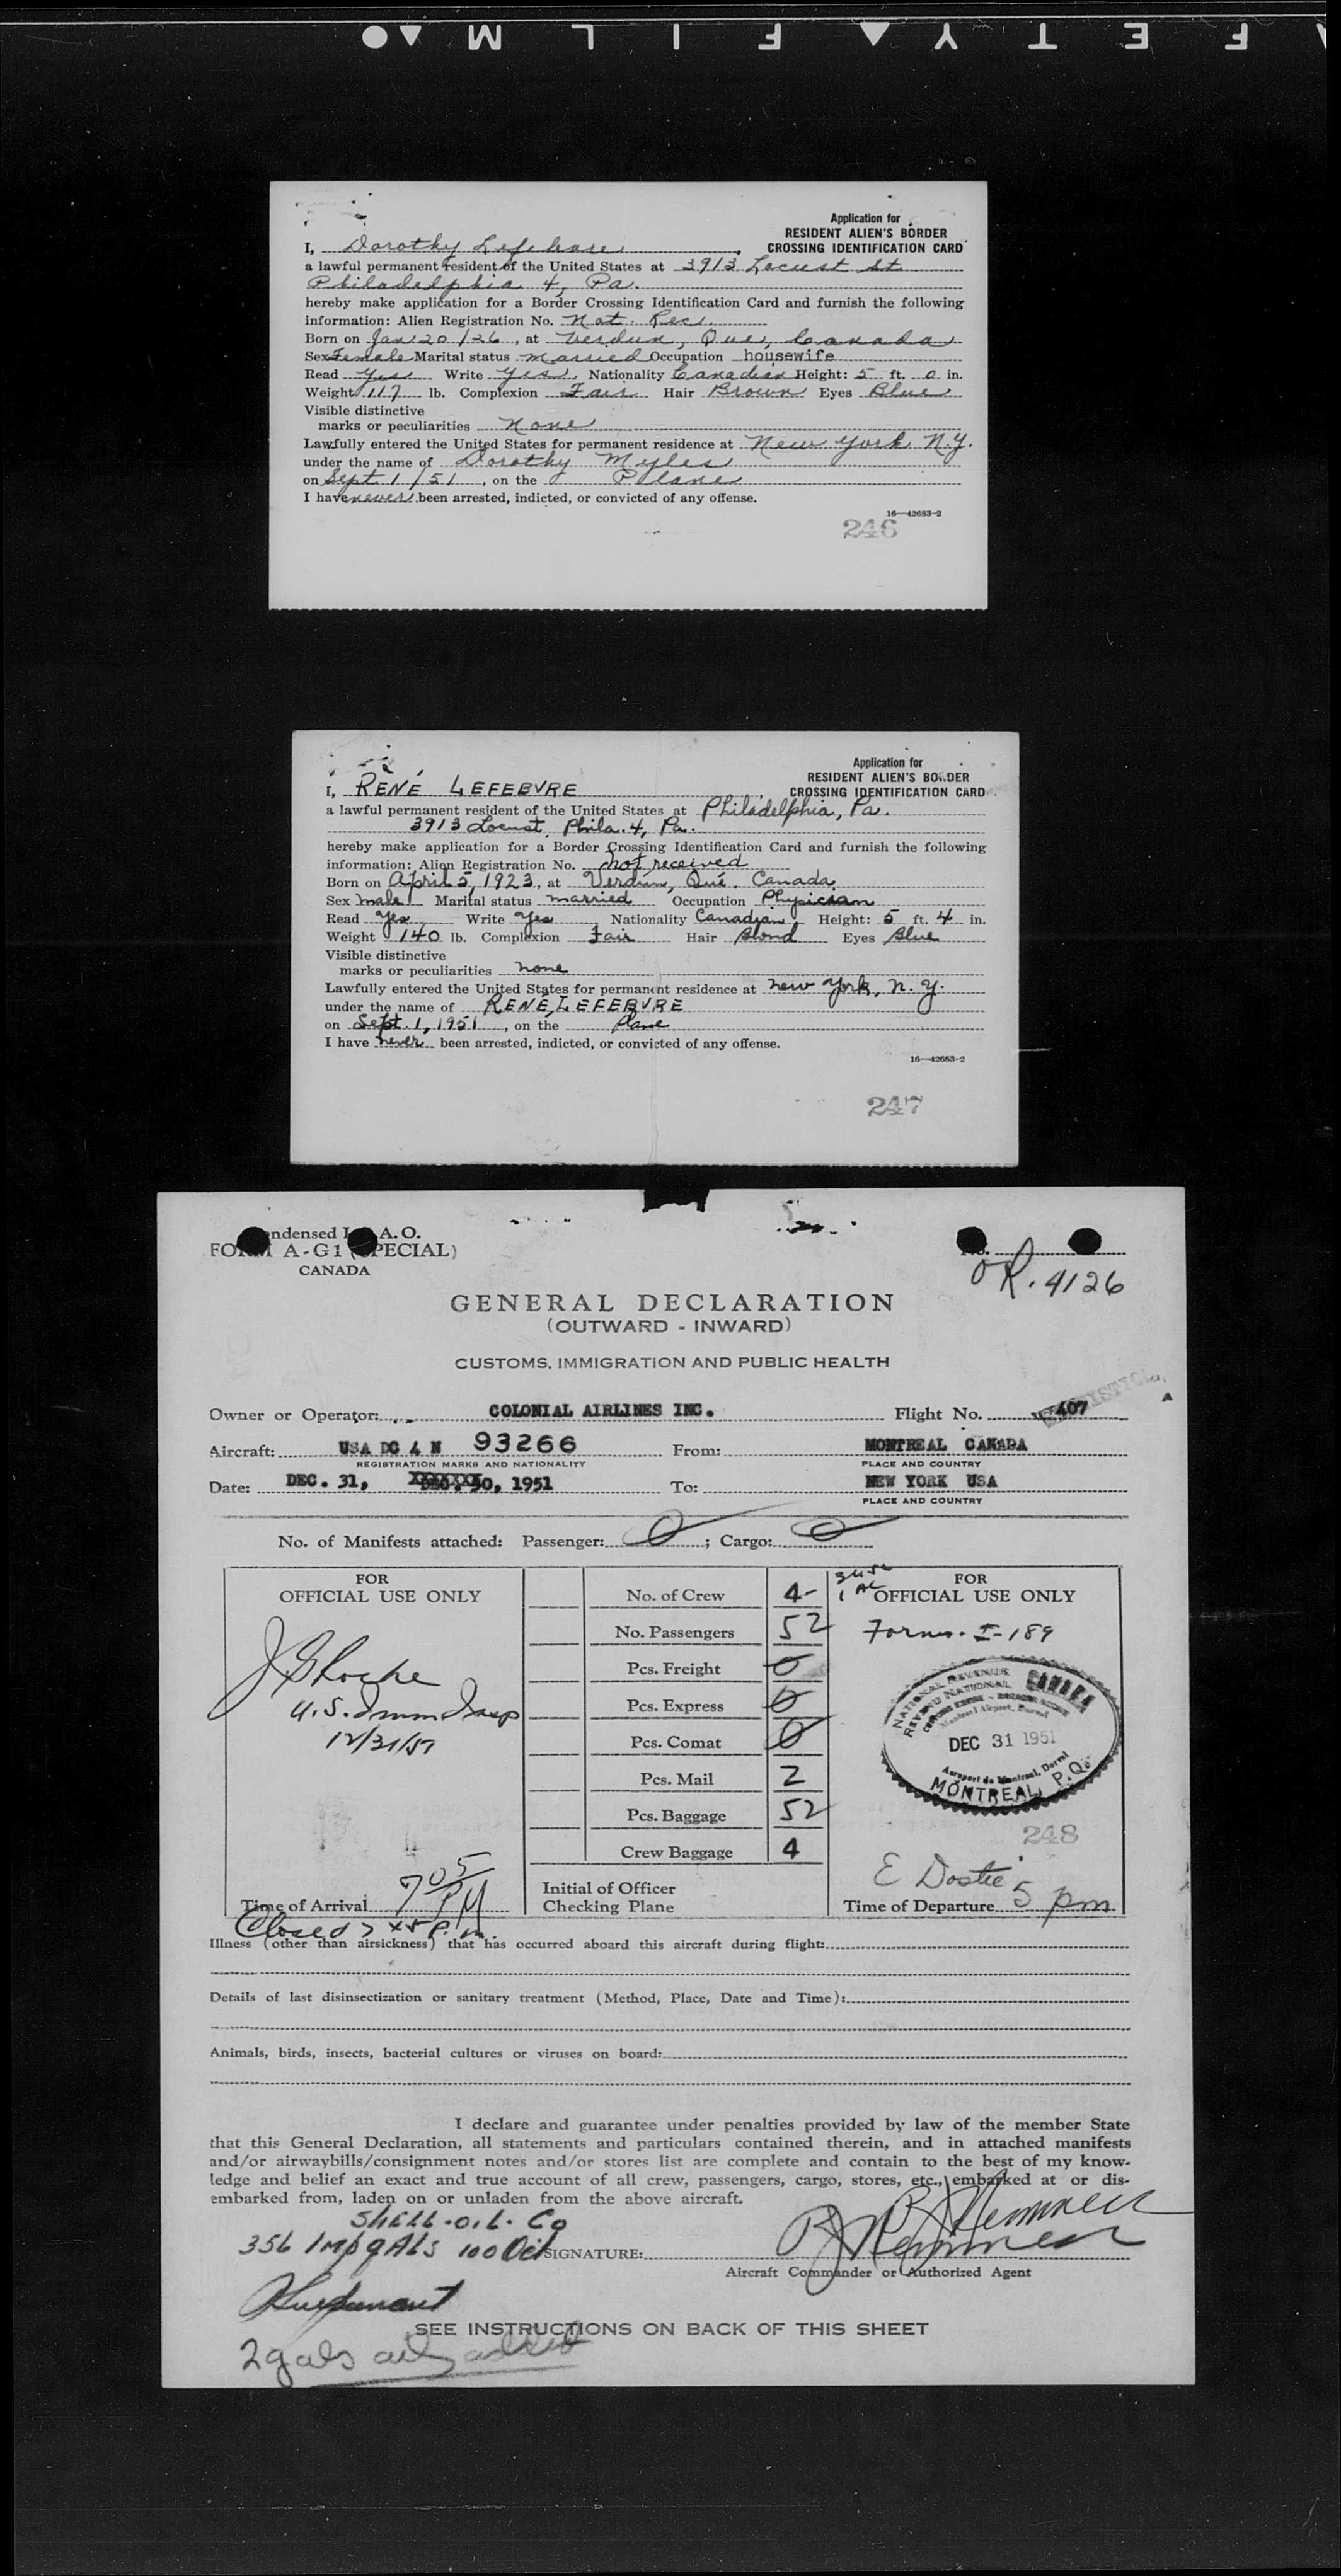 SAFETY FILM
Application for
RESIDENT ALIEN'S BORDER
CROSSING IDENTIFICATION CARD
I, Dorothy Lefebvre,
a lawful permanent resident of the United States at 3913 Locust St
Philadelphia 4, Pa.
hereby make application for a Border Crossing Identification Card and furnish the following
information: Alien Registration No. Not. Rec.
Born on Jan 20/26, at Verdun, Que, Canada
Sex Female Marital status married Occupation housewife
Read Yes Write Yes, Nationality Canadian Height: 5 ft. 0 in.
Weight 117 lb. Complexion Fair Hair Brown Eyes Blue
Visible distinctive
marks or peculiarities None
Lawfully entered the United States for permanent residence at New York N.Y.
under the name of Dorothy Myles
on Sept 1/51, on the Plane
I have never been arrested, indicted, or convicted of any offense.
16—42683-2
246
Application for
RESIDENT ALIEN'S BORDER
CROSSING IDENTIFICATION CARD
I, RENÉ LEFEBVRE,
a lawful permanent resident of the United States at Philadelphia, Pa.
3913 Locust, Phila. 4, Pa.
hereby make application for a Border Crossing Identification Card and furnish the following
information: Alien Registration No. not received
Born on April 5, 1923, at Verdun, Qué. Canada
Sex male Marital status married Occupation Physician
Read Yes Write Yes Nationality Canadian Height: 5 ft. 4 in.
Weight 140 lb. Complexion Fair Hair Blond Eyes Blue
Visible distinctive
marks or peculiarities none
Lawfully entered the United States for permanent residence at New York, N.Y.
under the name of RENE LEFEBVRE
on Sept. 1, 1951, on the Plane
I have never been arrested, indicted, or convicted of any offense.
16—42683-2
247
ndensed I A.O.
FORM A-G1 (SPECIAL)
CANADA
No.
OR. 4126
GENERAL DECLARATION
(OUTWARD - INWARD)
CUSTOMS, IMMIGRATION AND PUBLIC HEALTH
Owner or Operator: COLONIAL AIRLINES INC. Flight No. 407
Aircraft: USA DC 4 N 93266 From: MONTREAL CANADA
REGISTRATION MARKS AND NATIONALITY PLACE AND COUNTRY
Date: DEC. 31, 1951 To: NEW YORK USA
PLACE AND COUNTRY
No. of Manifests attached: Passenger: 0; Cargo: 0
FOR
OFFICIAL USE ONLY
U.S. Imm Insp
12/31/51
Time of Arrival 705 PM
Closed 7 45 P.m.
No. of Crew 4-
No. Passengers 52
Pcs. Freight 0
Pcs. Express 0
Pcs. Comat 0
Pcs. Mail 2
Pcs. Baggage 52
Crew Baggage 4
Initial of Officer
Checking Plane
FOR
OFFICIAL USE ONLY
Forms. I-189
NATIONAL REVENUE
REVENU NATIONAL
CANADA
Montreal Airport, Dorval
DEC 31 1951
Aeroport de Montreal, Dorval
MONTREAL, P.Q.
248
E Dostie
Time of Departure 5 pm
Illness (other than airsickness) that has occurred aboard this aircraft during flight:
Details of last disinsectization or sanitary treatment (Method, Place, Date and Time):
Animals, birds, insects, bacterial cultures or viruses on board:
I declare and guarantee under penalties provided by law of the member State
that this General Declaration, all statements and particulars contained therein, and in attached manifests
and/or airwaybills/consignment notes and/or stores list are complete and contain to the best of my know-
ledge and belief an exact and true account of all crew, passengers, cargo, stores, etc., embarked at or dis-
embarked from, laden on or unladen from the above aircraft.
SHELL OIL Co
356 Imp gals 100 Oct
SIGNATURE:
Aircraft Commander or Authorized Agent
SEE INSTRUCTIONS ON BACK OF THIS SHEET
2 gals oil added